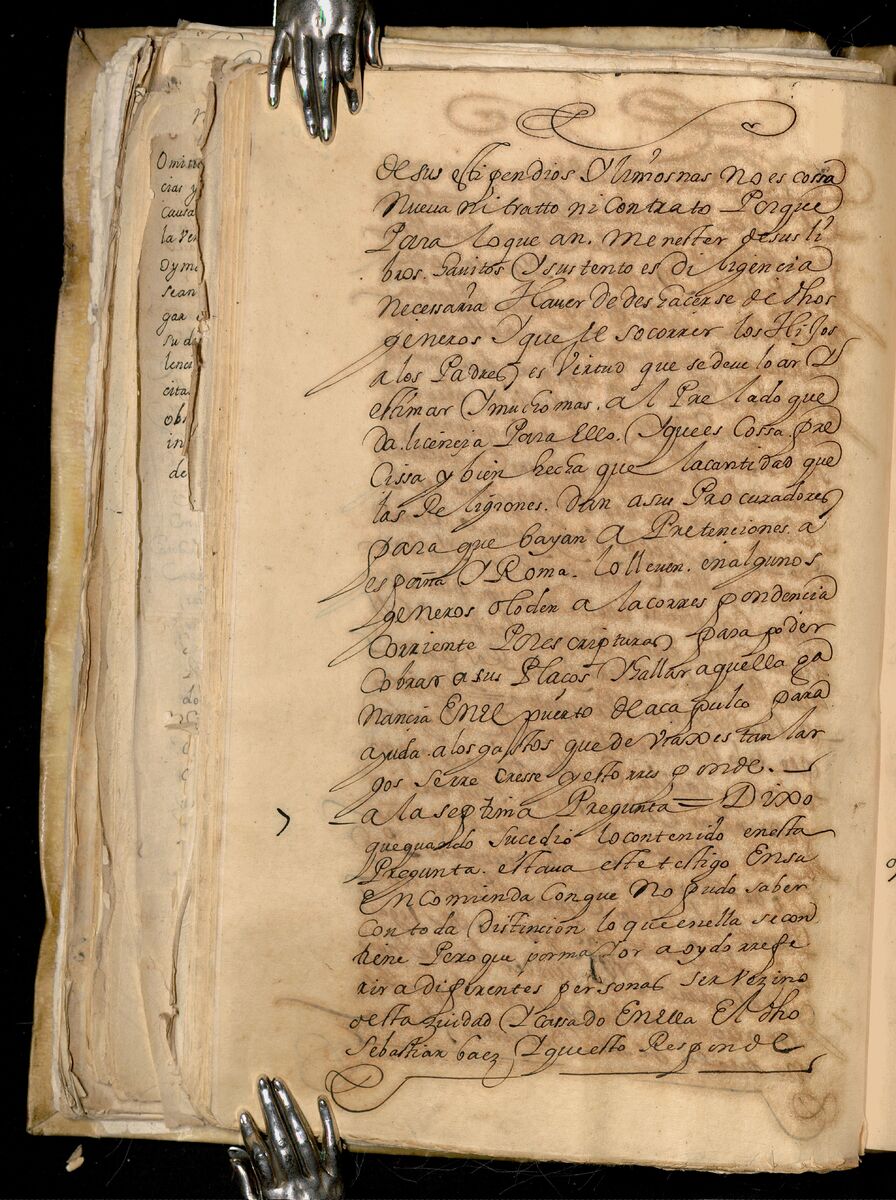 de sus estipendios Y limosnas no es cossa
Nueva ni tratto ni contrato Porque
Para lo que an. menester de sus li
bros. havitos Y sustento es diligencia
Necessaria Haver de deshacerse de dhos
generos Y que el socorrer los Hijos
a los Padres es Virtud que se deve loar Y
estimar Y mucho mas. al Prelado que
da. licencia Para ello. Y que es Cossa pre
cissa y bien hecha que la cantidad que
las Religiones. dan a sus Procuradores
para que bayan a Pretenciones. a
españa Y Roma. lo lleven. en algunos
generos o lo den a la correspondencia
corriente Por escripturas para poder
Cobrar a sus Placos Y hallar aquella ga
nancia En el puerto de acapulco para
ayuda. a los gastos que de viaxes tan lar
gos se rrecresse y esto rresponde.
a la septima Pregunta = Dixo
que quando sucedio lo contenido en esta
Pregunta. estava este testigo En su
Encomienda Con que No pudo saber
Con toda Distincion lo que en ella se con
tiene Pero que por maior a oydo rrefe
rir a diferentes personas ser Vezino
desta ziudad Y cassado En ella El dho
Sebastian baez Y que esto Responde
Omitie
cias y
causa
la Ver
Oy
sean
gar
su di
lenci
cita.
obs
in
de